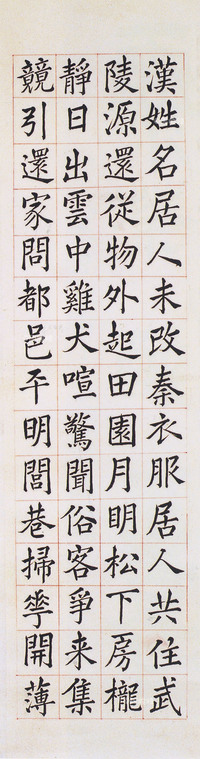 漢姓名居人未改秦衣服居人共住武
陵源還從物外起田園月明松下房櫳
靜日出雲中雞犬喧驚聞俗客爭来集
競引還家問都邑平明閭巷掃華開薄